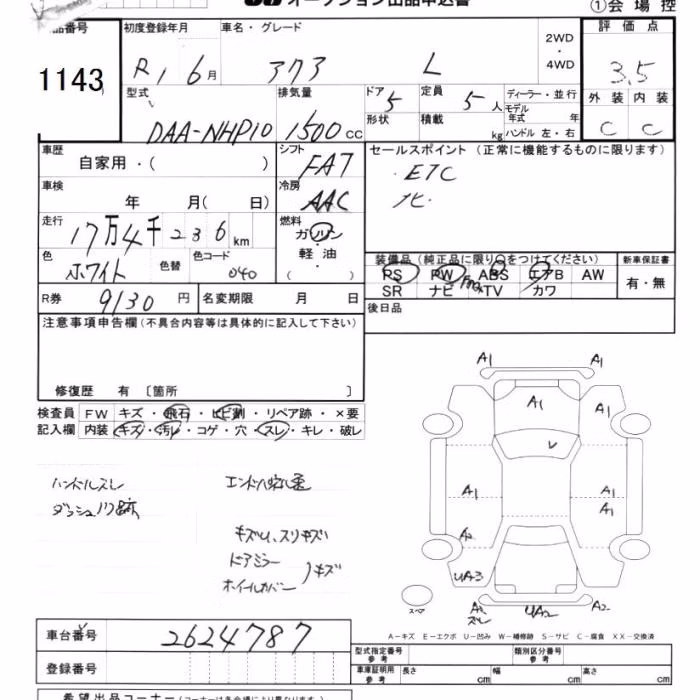 オークション出品申込書
①会場控
品番号
初度登録年月
車名・グレード
2WD
・
4WD
評価点
1143
R1 6月
L
3.5
型式
排気量
ドア
定員
ディーラー・並行
外装 内装
DAA-NHP10
1500cc
5
5人
モデル年式 年
C C
形状
積載
kg
ハンドル 左・右
車歴
自家用・( )
シフト
FAT
セールスポイント (正常に機能するものに限ります)
・ETC
ナビ・
車検
年 月( 日)
冷房
AAC
走行
17万4千236km
燃料
ガソリン
軽油
( )
色
ホワイト
色替
色コード
040
装備品(純正品に限り○をつけてください)
新車保証書
PS PW ABS エアB AW
SR ナビ TV カワ
有・無
R券
9130円
名変期限 月 日
後日品
注意事項申告欄(不具合内容等は具体的に記入して下さい)
修復歴 有 〔箇所 〕
検査員
FW
キズ・飛石・ヒビ割・リペア跡・×要
記入欄
内装
キズ・汚レ・コゲ・穴・スレ・キレ・破レ
ハンドルスレ
ダッシュ
キズU、スリキズ
ドアミラー
ホイールカバー
)キズ
A1 A1
A1 A1
A1 A1
A1
A2
UA3
スペア
A2
スレ
UA2
A2
A-キズ E-エクボ U-凹み W-補修跡 S-サビ C-腐食 XX-交換済
車台番号
2624787
型式指定番号
参考
類別区分番号
参考
登録番号
車庫証明用
参考
長さ cm
幅 cm
高さ cm
希望出品コーナー(コーナーは各会場により異なります)